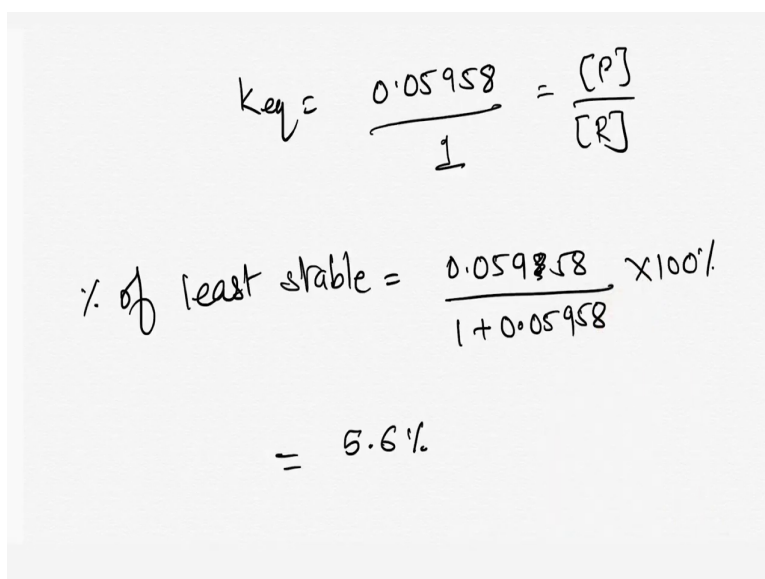 Keq = 0.05958 / 1 = [P] / [R]
% of least stable = 0.059858 / 1 + 0.05958 × 100%
= 5.6%